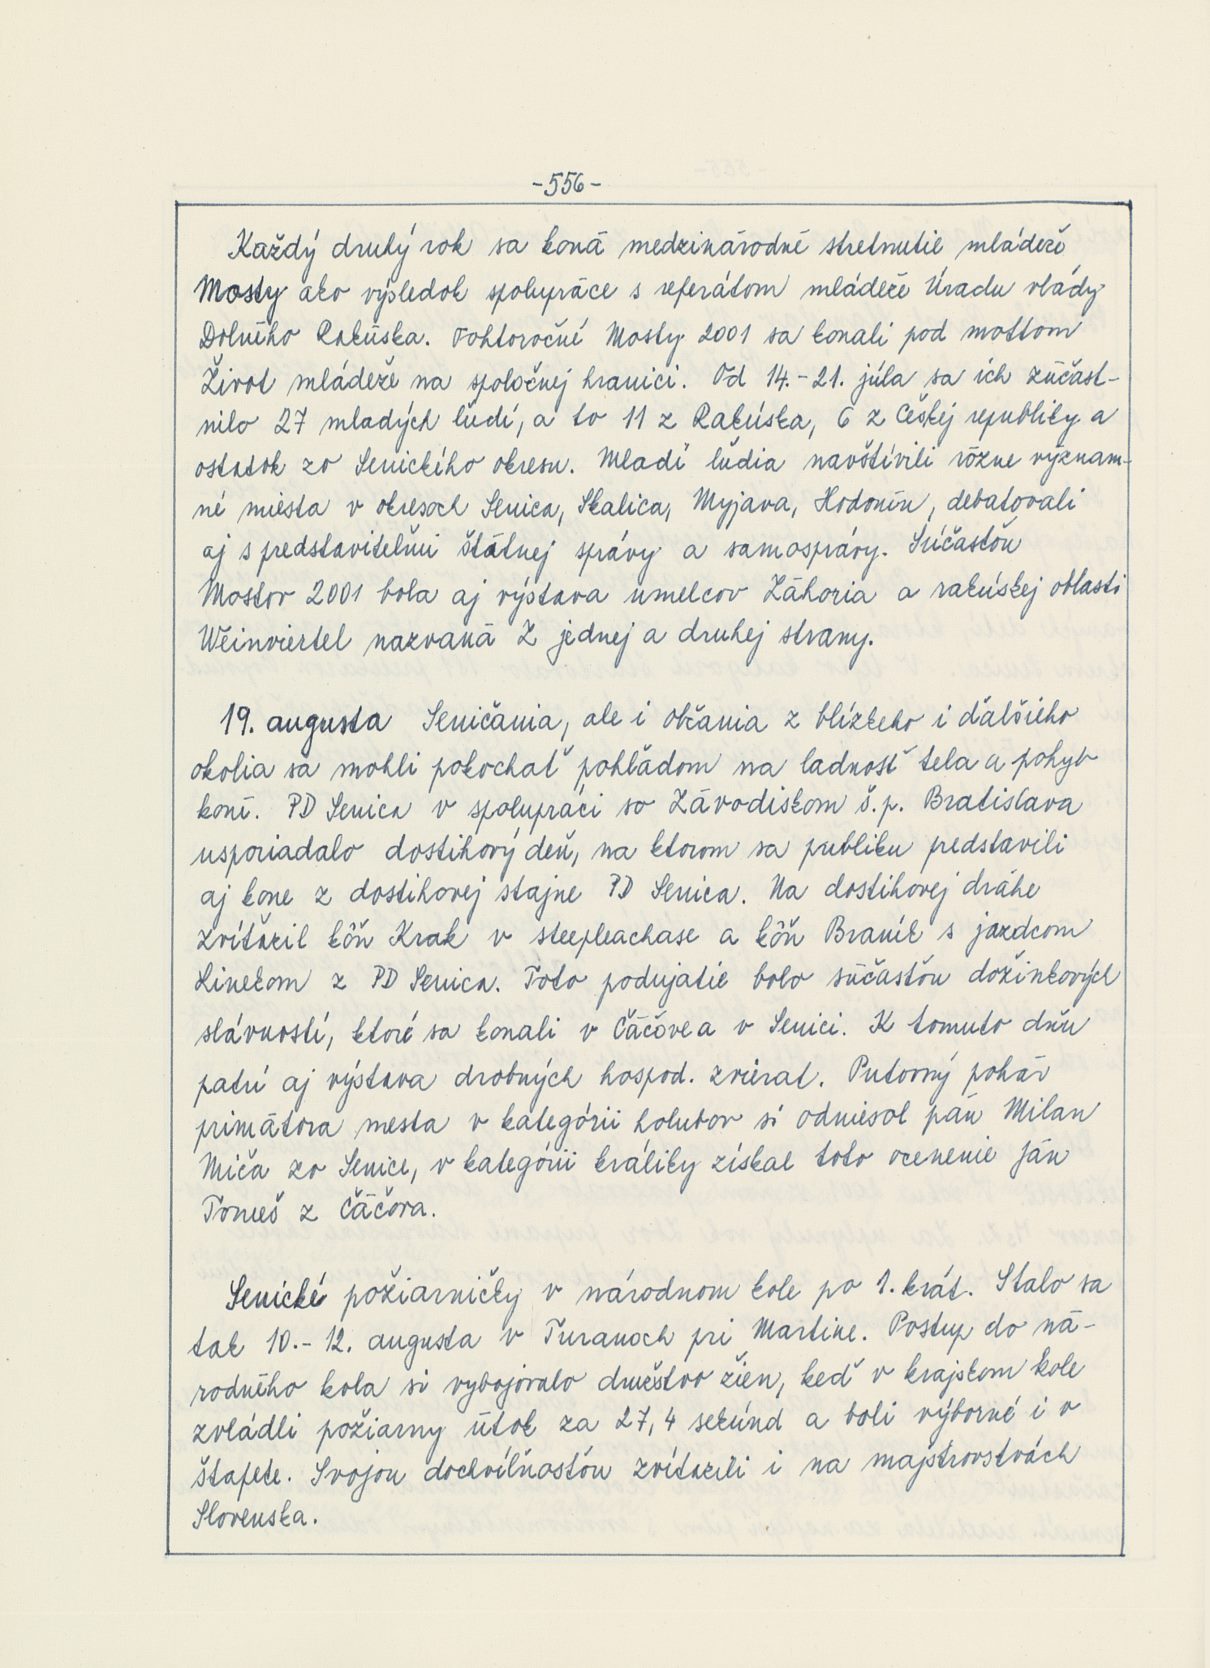 -556-
Každý druhý rok sa koná medzinárodné stretnutie mládeže
Mosty ako výsledok spolupráce s referátom mládeže Úradu vlády
Dolného Rakúska. Tohtoročné Mosty 2001 sa konali pod mottom
Život mládeže na spoločnej hranici. Od 14.-21. júla sa ich zúčast-
nilo 27 mladých ľudí, a to 11 z Rakúska, 6 z Českej republiky a
ostatok zo Senického okresu. Mladí ľudia navštívili rôzne význam-
né miesta v okresoch Senica, Skalica, Myjava, Hodonín, debatovali
aj s predstaviteľmi štátnej správy a samosprávy. Súčasťou
Mostov 2001 bola aj výstava umelcov Záhoria a rakúskej oblasti
Weinviertel nazvaná Z jednej a druhej strany.
19. augusta Seničania, ale i občania z blízkeho i ďalšieho
okolia sa mohli pokochať pohľadom na ladnosť tela a pohyb
koní. PD Senica v spolupráci so Závodiskom š.p. Bratislava
usporiadalo dostihový deň, na ktorom sa publiku predstavili
aj kone z dostihovej stajne PD Senica. Na dostihovej dráhe
zvíťazil kôň Krak v steepleachase a kôň Braník s jazdcom
Linekom z PD Senica. Toto podujatie bolo súčasťou dožinkových
slávností, ktoré sa konali v Čáčove a v Senici. K tomuto dňu
patrí aj výstava drobných hospod. zvierat. Putovný pohár
primátora mesta v kategórii holubov si odniesol pán Milan
Miča zo Senice, v kategórii králiky získal toto ocenenie Ján
Tomeš z Čáčova.
Senické požiarničky v národnom kole po 1. krát. Stalo sa
tak 10.-12. augusta v Turanoch pri Martine. Postup do ná-
rodného kola si vybojovalo družstvo žien, keď v krajskom kole
zvládli požiarny útok za 27,4 sekúnd a boli výborné i v
štafete. Svojou dochvíľnosťou zvíťazili i na majstrovstvách
Slovenska.